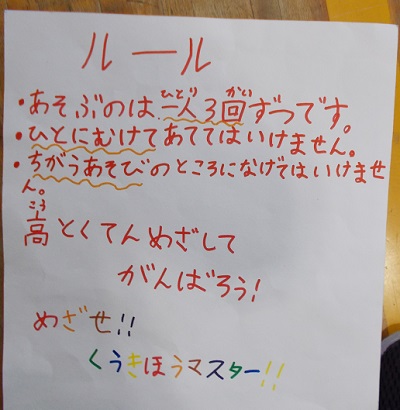 ルール
・あそぶのは一人3回ずつです。
・ひとにむけてあててはいけません。
・ちがうあそびのところになげてはいけませ
ん。
高とくてんめざして
がんばろう!
めざせ!!
くうきほうマスター!!